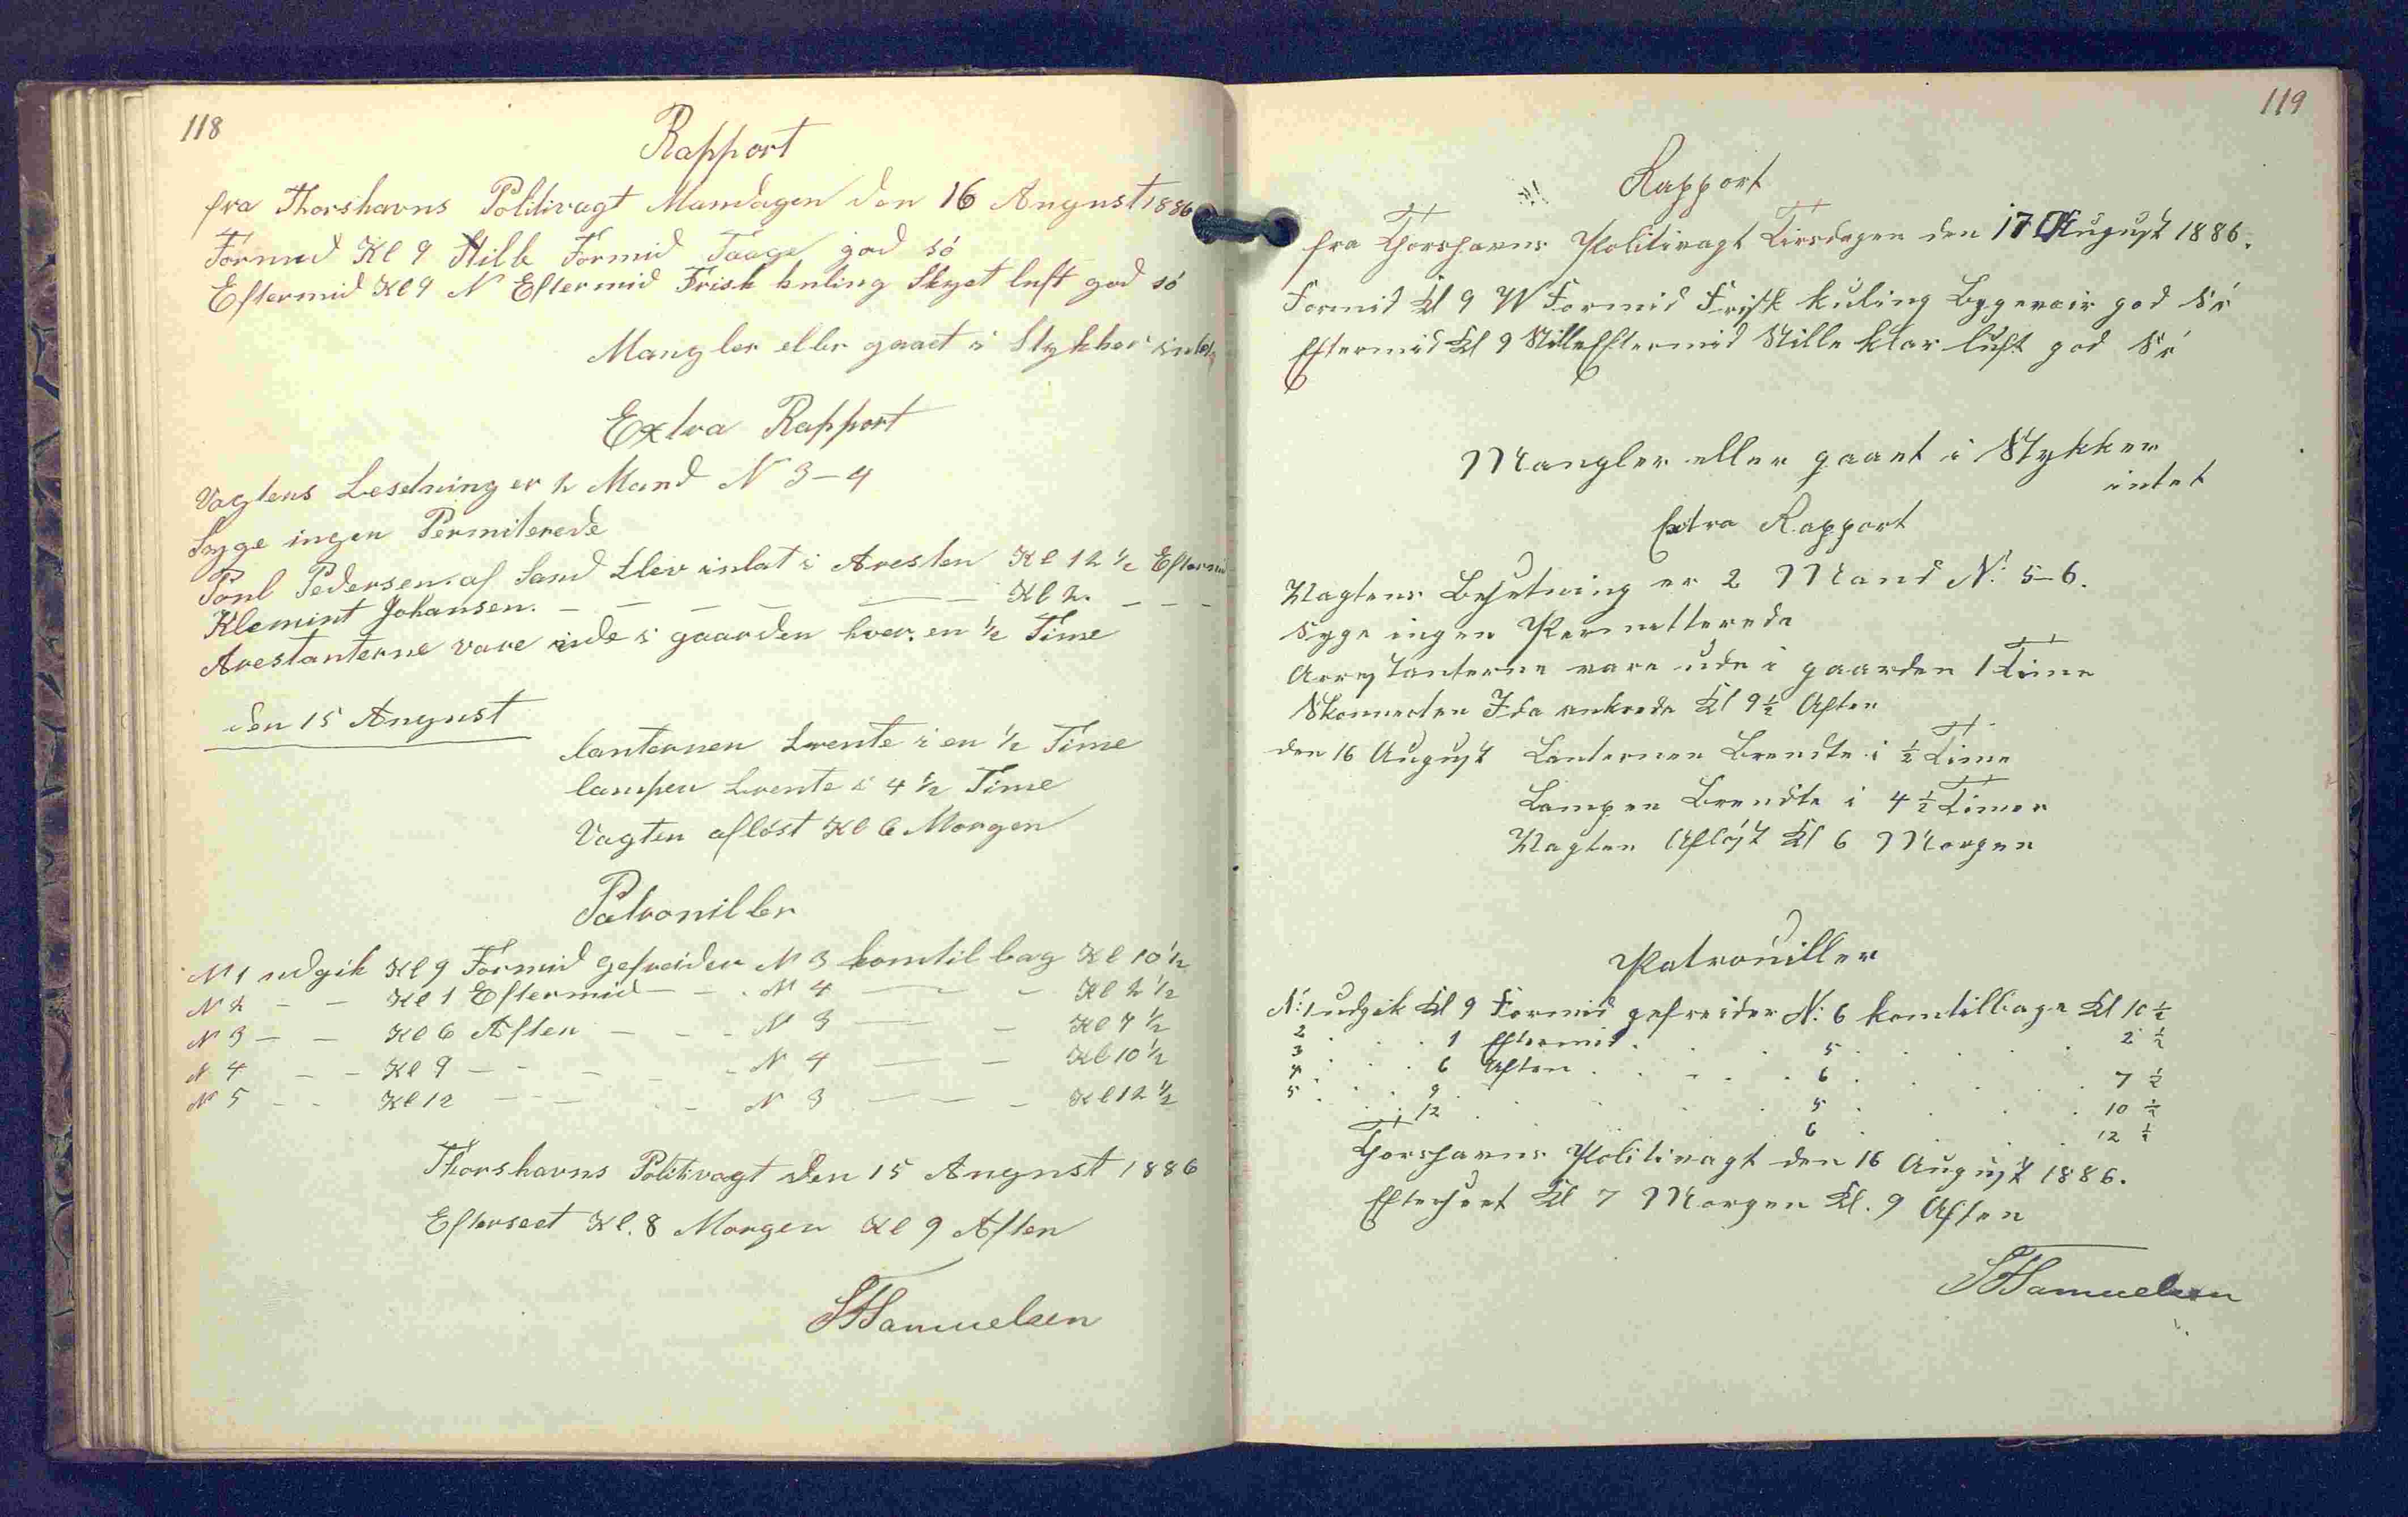 118
Rapport
fra Thorshavns Politivagt Mandagen den 16 August 1886
Formid Kl 9 Stille Formid Taage god só
Eftermid Kl 9 N Eftermid Frisk kuling Skyet luft god só
Mangler eller gaaet i Stykker intet
Extra Rapport
Vagtens Besetning er 2 Mand N 3-4
Syge ingen Permiterede
Poul Pedersen af Sand blev inlat i Aresten Kl 12 1/2 Eftermid
Klemint Johansen. – – – – — Kl 2. – – –
Arestanterne vare ude i gaarden hver en 1/2 Time
den 15 August
lanternen brente i en 1/2 Time
lampen brente i 4 1/2 Time
Vagten aflóst Kl 6 Morgen
Patrouiller
N 1 udgik Kl 9 Formid gefreider N 3 komtil bag Kl 10 1/2
N 2 – – Kl 1 Eftermid – – N 4 — – Kl 2 1/2
N 3 – – Kl 6 Aften – – – N 3 — – Kl 7 1/2
N 4 – – Kl 9 – – – – – N 4 — – Kl 10 1/2
N 5 – – Kl 12 – – – – N 3 — – – Kl 12 1/2
Thorshavns Politivagt den 15 August 1886
Efterseet Kl. 8 Morgen Kl 9 Aften
Samuelsen
119
Rapport
fra Thorshavns Politivagt Tirsdagen den 17 August 1886.
Formid Kl 9 W Formid Frisk kuling Bygevær god Só
Eftermid Kl 9 Stille Eftermid Stille klar luft god Só
Mangler eller gaaet i Stykker
intet
Extra Rapport
Vagtens Besetning er 2 Mand N: 5-6.
Syge ingen Permetterede
Arrestanterne vare ude i gaarden 1 Time
Skonnerten Ida ankrede Kl 9 1/2 Aften
den 16 August Lanternen Brendte i 1/2 Time
Lampen Brendte i 4 1/2 Timer
Vagten Aflóst Kl 6 Morgen
Patrouiller
N: 1 udgik Kl 9 Formid gefreider N: 6 komtilbage Kl 10 1/2
2 . . . 1 Eftermid . . . 5 . . . . 2 1/2
3 . . . 6 Aften . . . . 6 . . . . 7 1/2
4 . . . 9 . . . . 5 . . . . 10 1/2
5 . . . 12 . . . . 6 . . . . 12 1/2
Thorshavns Politivagt den 16 August 1886.
Efterseet Kl 7 Morgen Kl. 9 Aften
Samuelsen